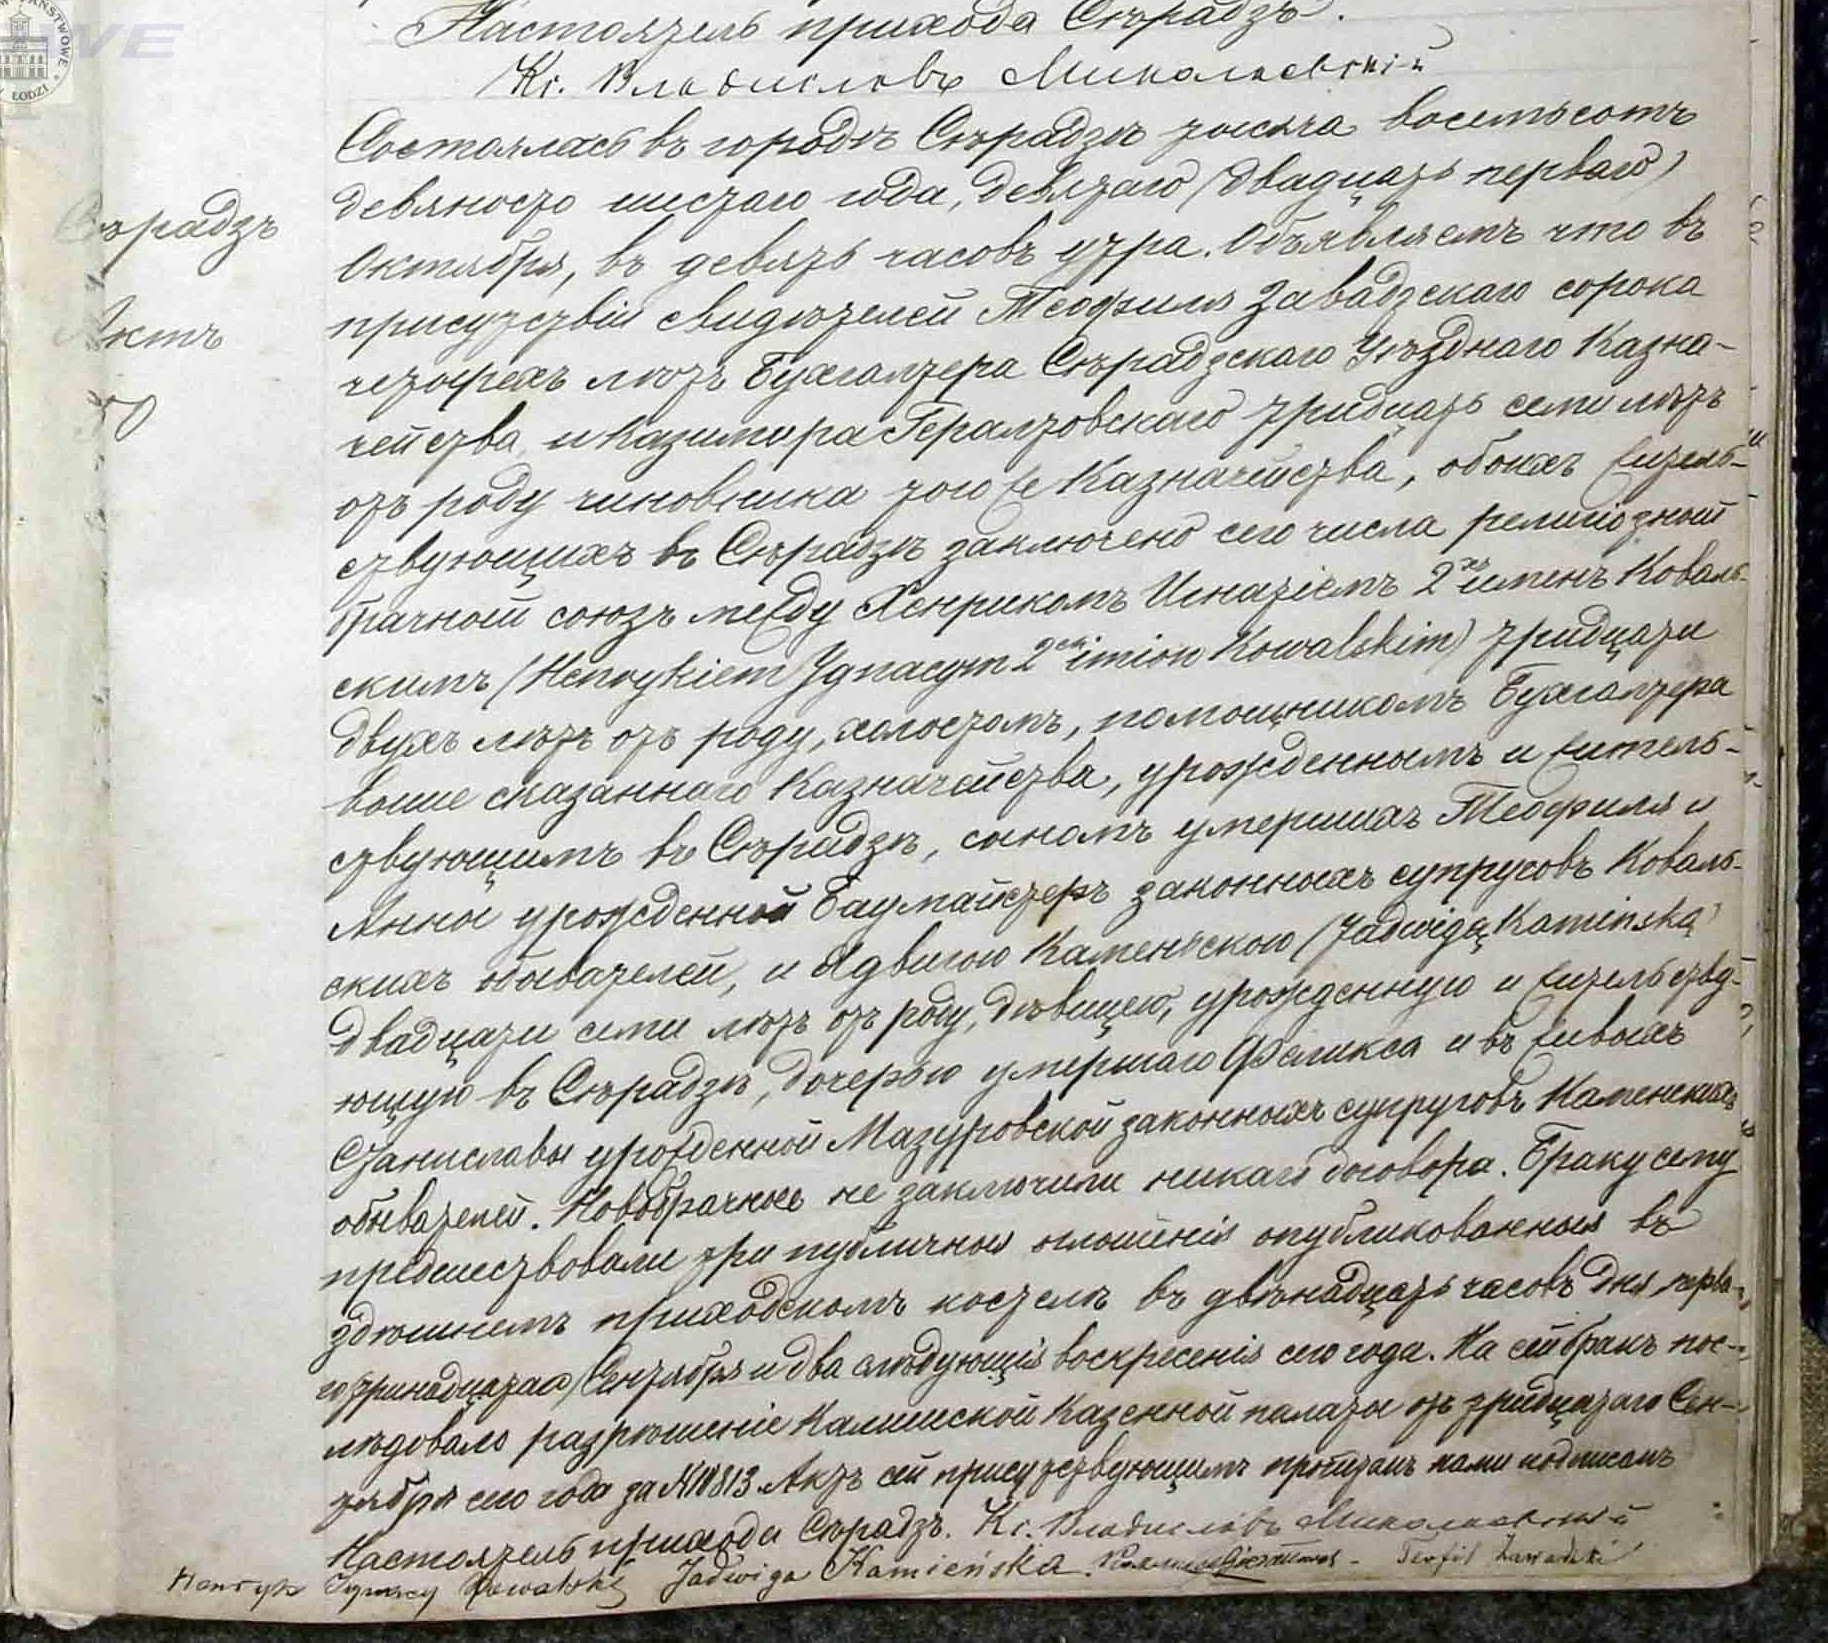 PAŃSTWOWE
ŁODZI
VE
Настоятель прихода Сѣрадзъ.
Кс. Владиславъ Миколаевскій
Сѣрадзъ
Актъ
Состоялось въ городѣ Сѣрадзѣ тысяча восемьсотъ
девяносто шестаго года, девятаго (двадцать перваго)
Октября, въ девять часовъ утра. Объявляемъ что въ
присутствіи свидѣтелей Теофиля Завадзскаго сорока
четырехъ лѣтъ Бухгалтера Сѣрадзскаго Уѣзднаго Казна-
чейства, и Казимира Гералтовскаго тридцать семи лѣтъ
отъ роду чиновника того же Казначейства, обоихъ житель-
ствующихъ въ Сѣрадзѣ заключенъ сего числа религіозный
брачный союзъ между Хенрикомъ Игнатіемъ 2хъ именъ Коваль-
скимъ (Henrykiem Ignacym 2ch imion Kowalskim) тридцати
двухъ лѣтъ отъ роду, холостымъ, помощникомъ Бухгалтера
выше сказаннаго Казначейства, урожденнымъ и житель-
ствующимъ въ Сѣрадзѣ, сыномъ умершихъ Теофиля и
Анны урожденной Баумайстеръ законныхъ супруговъ Коваль-
скихъ обывателей, и Ядвигою Каменьскою (Jadwigą Kamińską)
двадцати семи лѣтъ отъ роду, дѣвицею, урожденную и жительству-
ющую въ Сѣрадзѣ, дочерью умершаго Феликса и въ живыхъ
Станиславы урожденной Мазуровской законныхъ супруговъ Каменскихъ
обывателей. Новобрачные не заключили никаго договора. Браку сему
предшествовали три публичныя оглашенія опубликованныя въ
здѣшнемъ приходскомъ костелѣ въ двѣнадцать часовъ дня, перва-
го (тринадцатаго) Сентября и два слѣдующія воскресенія сего года. На сей бракъ пос-
лѣдовало разрѣшеніе Калишской Казенной палаты отъ тридцатаго Сен-
тября сего года за № 10813. Актъ сей присутствующимъ прочитанъ нами подписанъ
Настоятель прихода Сѣрадзъ. Кс. Владиславъ Миколаевскій
Henryk Ignacy Kowalski Jadwiga Kamieńska Teofil Zawadzki